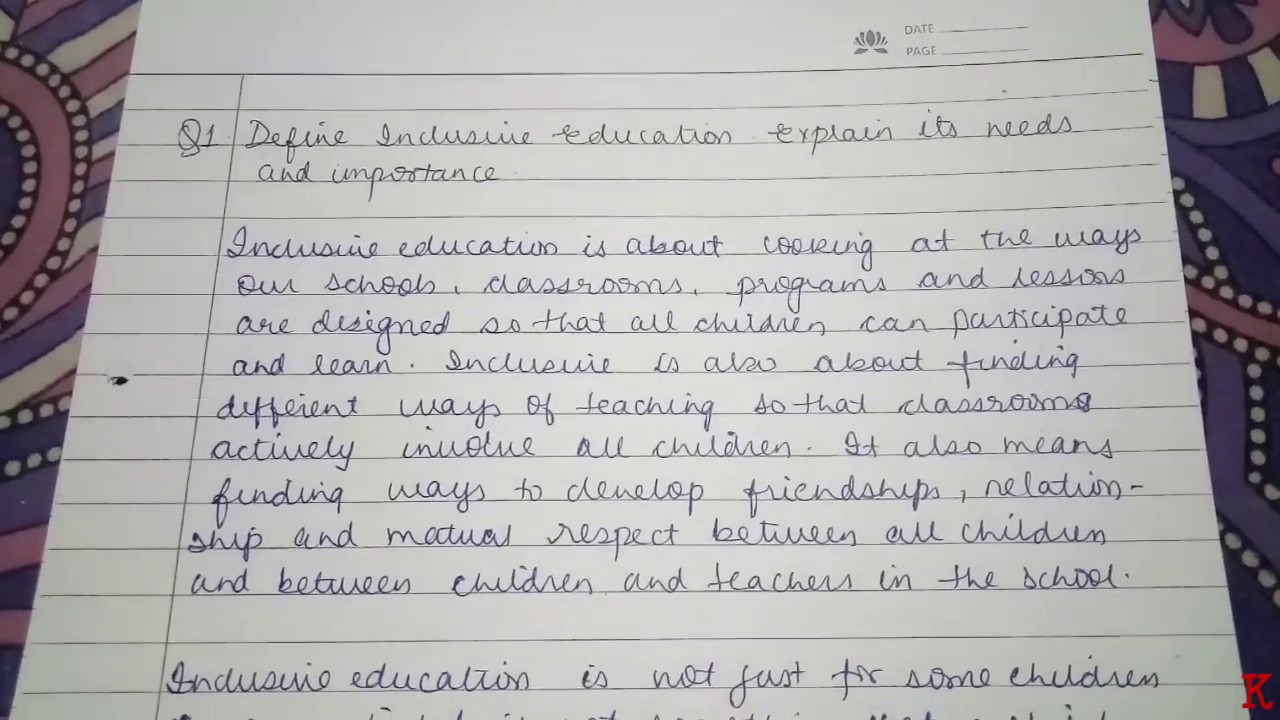 DATE
PAGE
Q1 Define Inclusive Education explain its needs
and importance
Inclusive education is about cooking at the ways
our schools, classrooms, programs and lessons
are designed so that all children can participate
and learn. Inclusive is also about finding
different ways of teaching so that classrooms
actively involve all children. It also means
finding ways to develop friendships, relation-
ship and matual respect between all children
and between children and teachers in the school.
Inclusive education is not just for some children
K